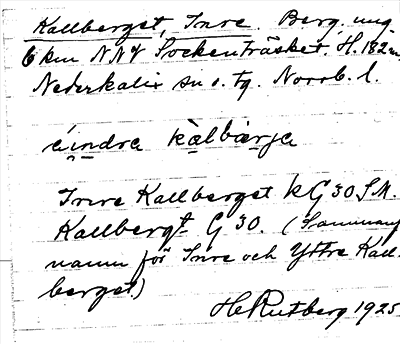 Kallberget, Inre. Berg. ung.
6 km NNV Sockenträsket. H. 182 m.
Nederkalix sn o. tg. Norrb. l.
ìndre kàlbærje
Inre Kallberget KG 30 S.M.
Kallbergt G 30. (Samman
namn för Inre och Yttre Kall
berget)
H Rutberg 1925